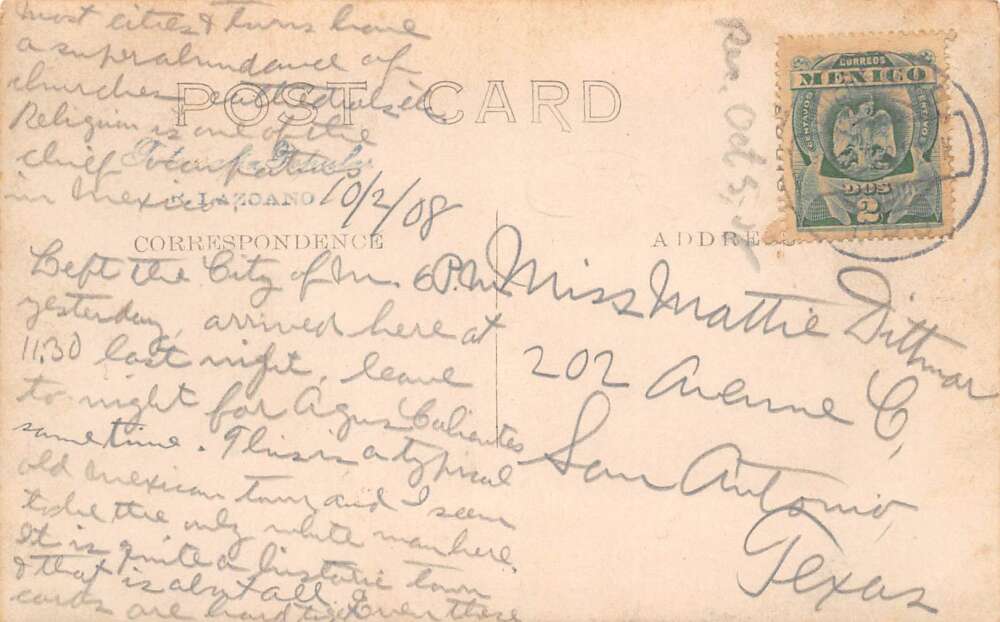 most cities & towns have
a superabundance of
churches, cathedrals etc
Religion is one of the
chief
in Mexico.
10/2/08
POST CARD
LAZCANO
CORRESPONDENCE
Left the City of M. 6 P.M.
yesterday, arrived here at
11.30 last night, leave
to night for Agus Calientes
same time. This is a typical
old mexican town and I seem
to be the only white man here.
It is quite a historic town
& that is about all. Even these
cards are hard to get.
Rec. Oct 5,
CORREOS
MEXICO
CENTAVOS
CENTAVOS
DOS
2
ADDRESS
Miss Mattie Dittmar
202 Avenue C,
San Antonio,
Texas